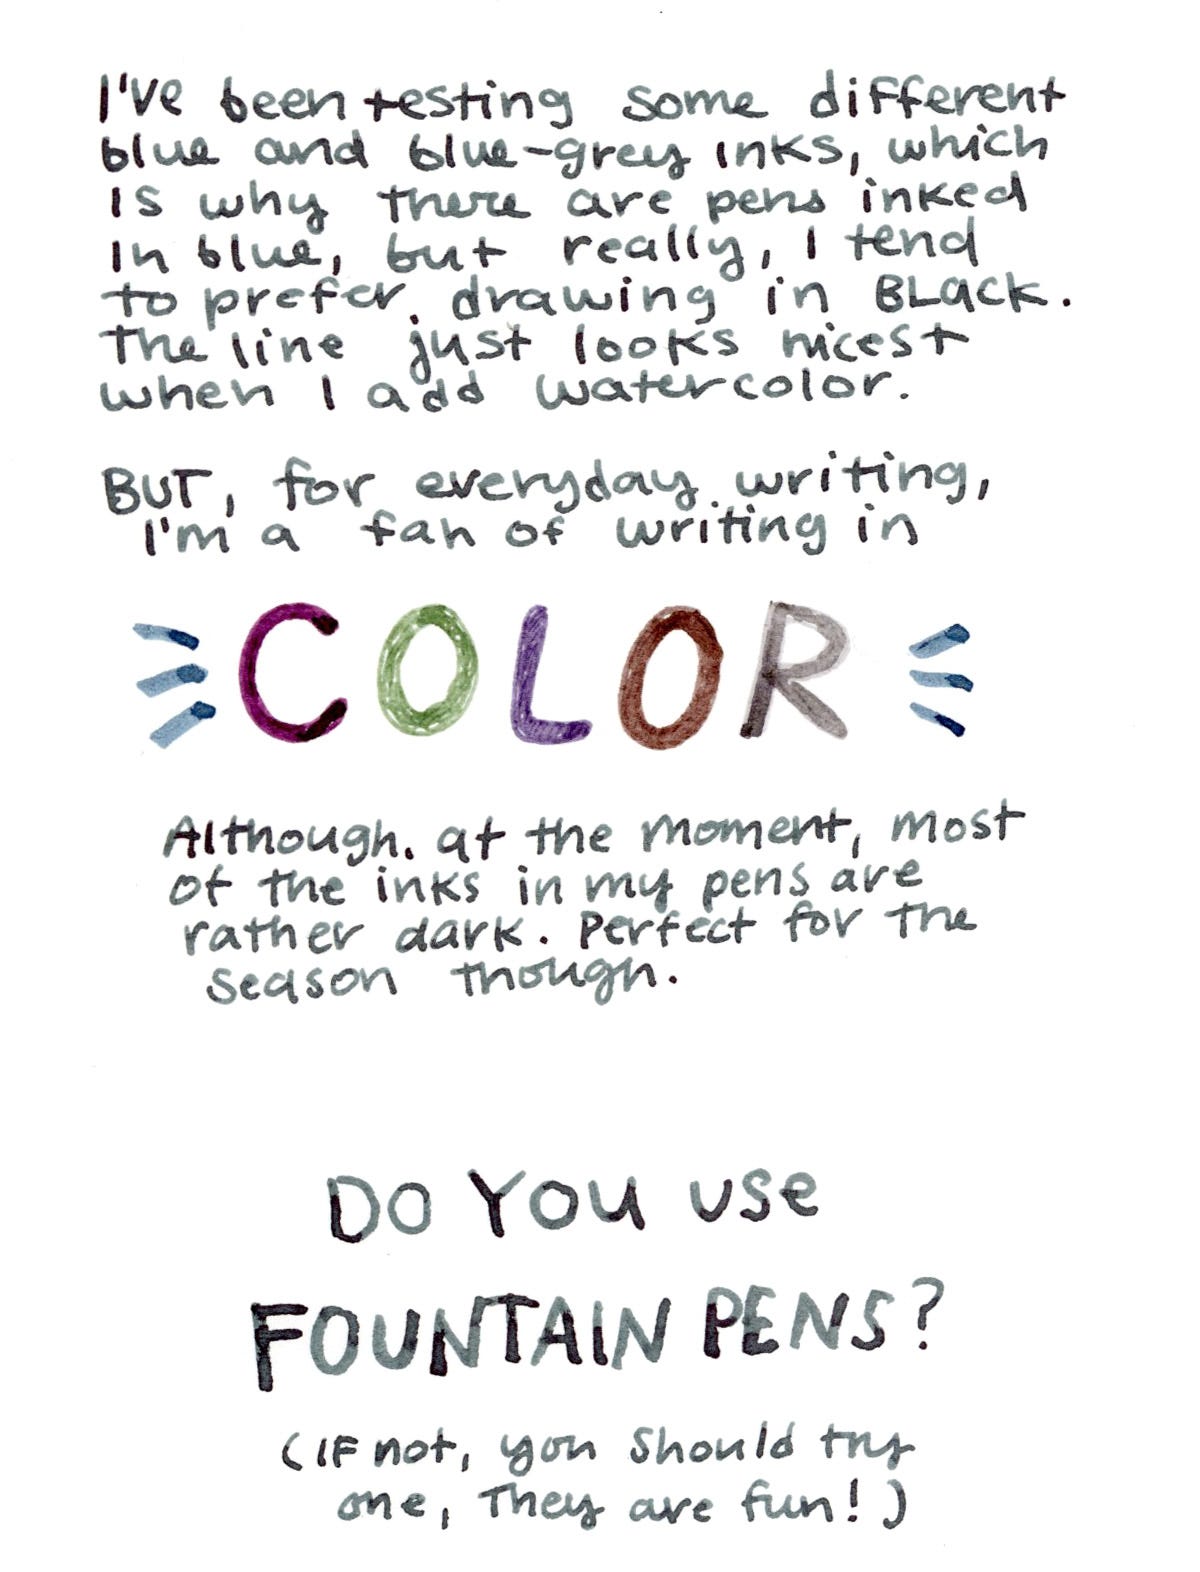 I've been testing some different
blue and blue-grey inks, which
is why there are pens inked
in blue, but really, I tend
to prefer drawing in BLaCK.
The line just looks nicest
when I add watercolor.
BUT, for everyday writing,
I'm a fan of writing in
COLOR
Although. at the moment, most
of the inks in my pens are
rather dark. Perfect for the
season though.
DO YOU use
FOUNTAIN PENS?
(IF not, you should try
one, They are fun!)